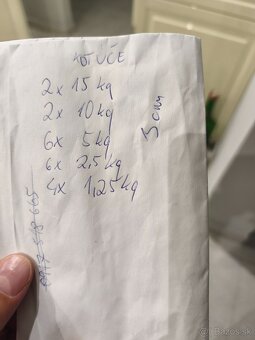 KOTÚČE
2x 15 kg
2x 10 kg
6x 5 kg
6x 2,5 kg
4x 1,25 kg
3 cm